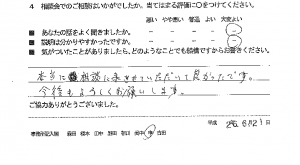 4 相談会でのご相談はいかがでしたか。当てはまる評価に○をつけてください。
悪い やや悪い 普通 良い 大変よい
■ あなたの話をよく聞きましたか。
■ 説明は分かりやすかったですか。
■ 気がついたことがありましたら、どのようなことでも結構ですからお書きください。
本当に相談に来させていただいて良かったです。
今後もよろしくお願いします。
ご協力ありがとうございました。
平成 26年 6月21日
事務所記入欄